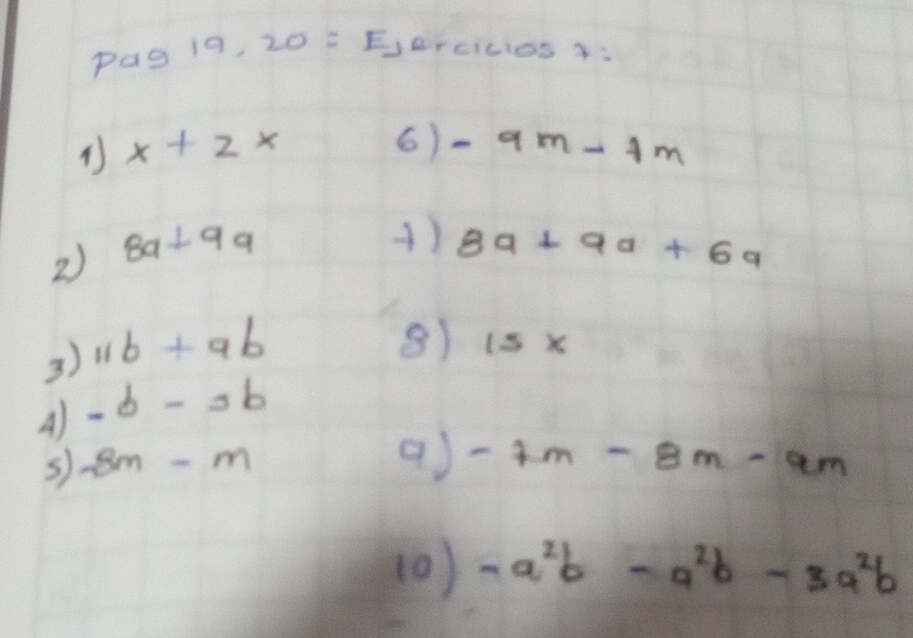 pag 19, 20 = Ejercicios 7:
1) x + 2x
2) 8a + 9a
3) 11b + 9b
4) - b - 5b
5) -8m - m
6) - 9m - 7m
7) 8a + 9a + 6a
8) 15x
9) - 7m - 8m - 9m
10) - a²b - a²b - 3a²b